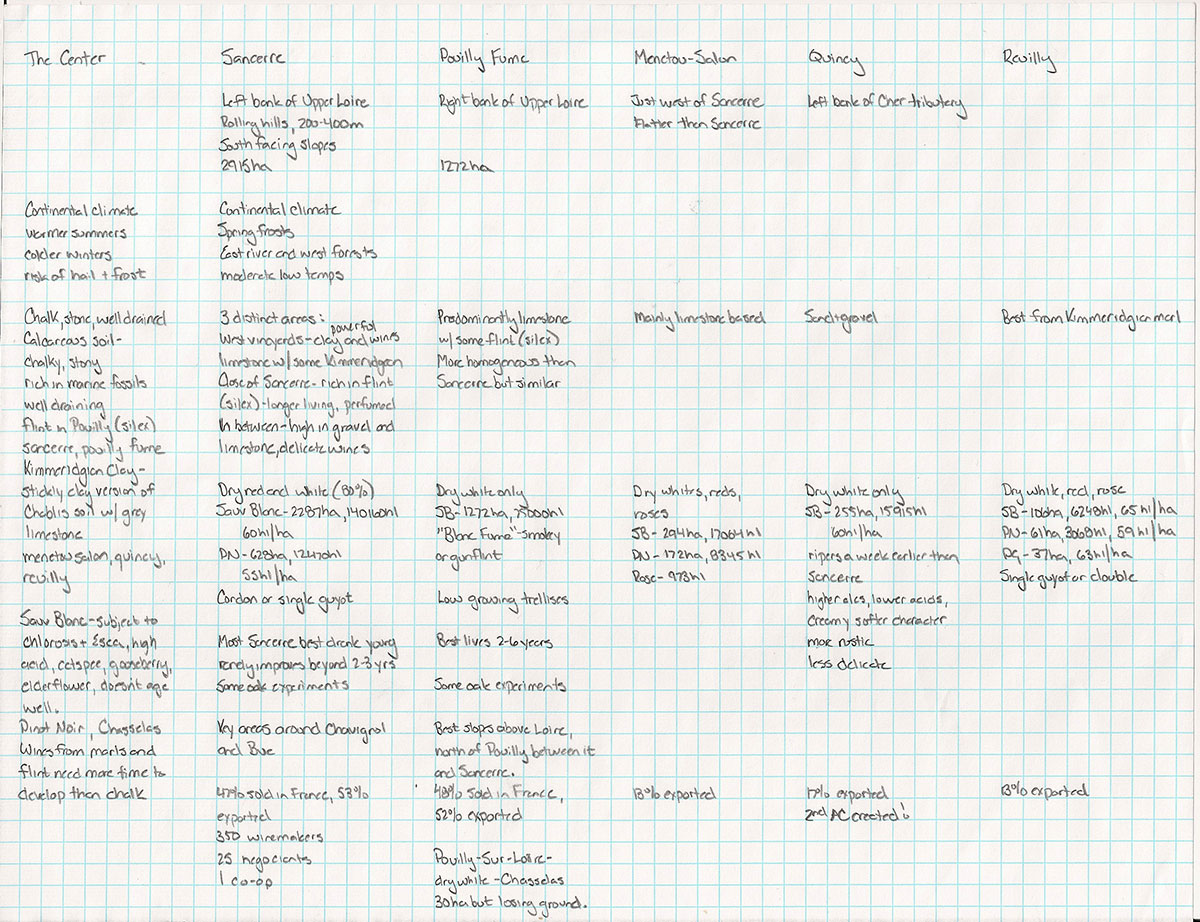 The Center
Continental climate
warmer summers
colder winters
risk of hail + frost
Chalk, stone, well drained
Calcareous soil-
chalky, stony
rich in marine fossils
well draining
flint in Pouilly (silex)
sancerre, pouilly fume
Kimmeridgian Clay-
stickly clay version of
Chablis soil w/ grey
limestone
menetou salon, quincy,
reuilly
Sauv Blanc-subject to
chlorosis + Esca, high
acid, catspee, gooseberry,
elderflower, doesn't age
well.
Pinot Noir, Chasselas
Wines from marls and
flint need more time to
develop than chalk
Sancerre
Left bank of Upper Loire
Rolling hills, 200-400m
South facing slopes
2915ha
Continental climate
Spring frosts
East river and west forests
moderate low temps
3 distinct areas:
powerful
West vineyards-clay and wines
limestone w/ some Kimmeridgean
Close of Sancerre-rich in flint
(silex)-longer living, perfumed
In between-high in gravel and
limestone, delicate wines
Dry red and white (80%)
Sauv Blanc-2287ha, 140160hl
60hl/ha
PN-628ha, 12470hl
55hl/ha
Cordon or single guyot
Most Sancerre best drank young
rarely improves beyond 2-3 yrs
Some oak experiments
Key areas around Chavignol
and Bue
47% sold in France, 53%
exported
350 winemakers
25 negociants
1 co-op
Pouilly Fume
Right bank of Upper Loire
1272ha
Predominantly limestone
w/ some flint (silex)
More homogenous than
Sancerre but similar
Dry white only
SB-1272ha, 75000hl
"Blanc Fume"-smokey
or gunflint
Low growing trellises
Best lives 2-6 years
Some oak experiments
Best slops above Loire,
north of Pouilly between it
and Sancerre.
48% sold in France,
52% exported
Pouilly-Sur-Loire-
dry white-Chasselas
30ha but losing ground.
Menetou-Salon
Just west of Sancerre
Flatter than Sancerre
Mainly limestone based
Dry whites, reds,
roses
SB-294ha, 17064hl
PN-172ha, 8345hl
Rose-973hl
13% exported
Quincy
Left bank of Cher tributary
Sand + gravel
Dry white only
SB-255ha, 15915hl
60hl/ha
ripens a week earlier than
Sancerre
higher alcs, lower acids,
creamy softer character
more rustic
less delicate
17% exported
2nd AC created!
Reuilly
Best from Kimmeridgian marl
Dry white, red, rose
SB-106ha, 6248hl, 65hl/ha
PN-61ha, 3068hl, 59hl/ha
PG-37ha, 63hl/ha
Single guyot or double
13% exported